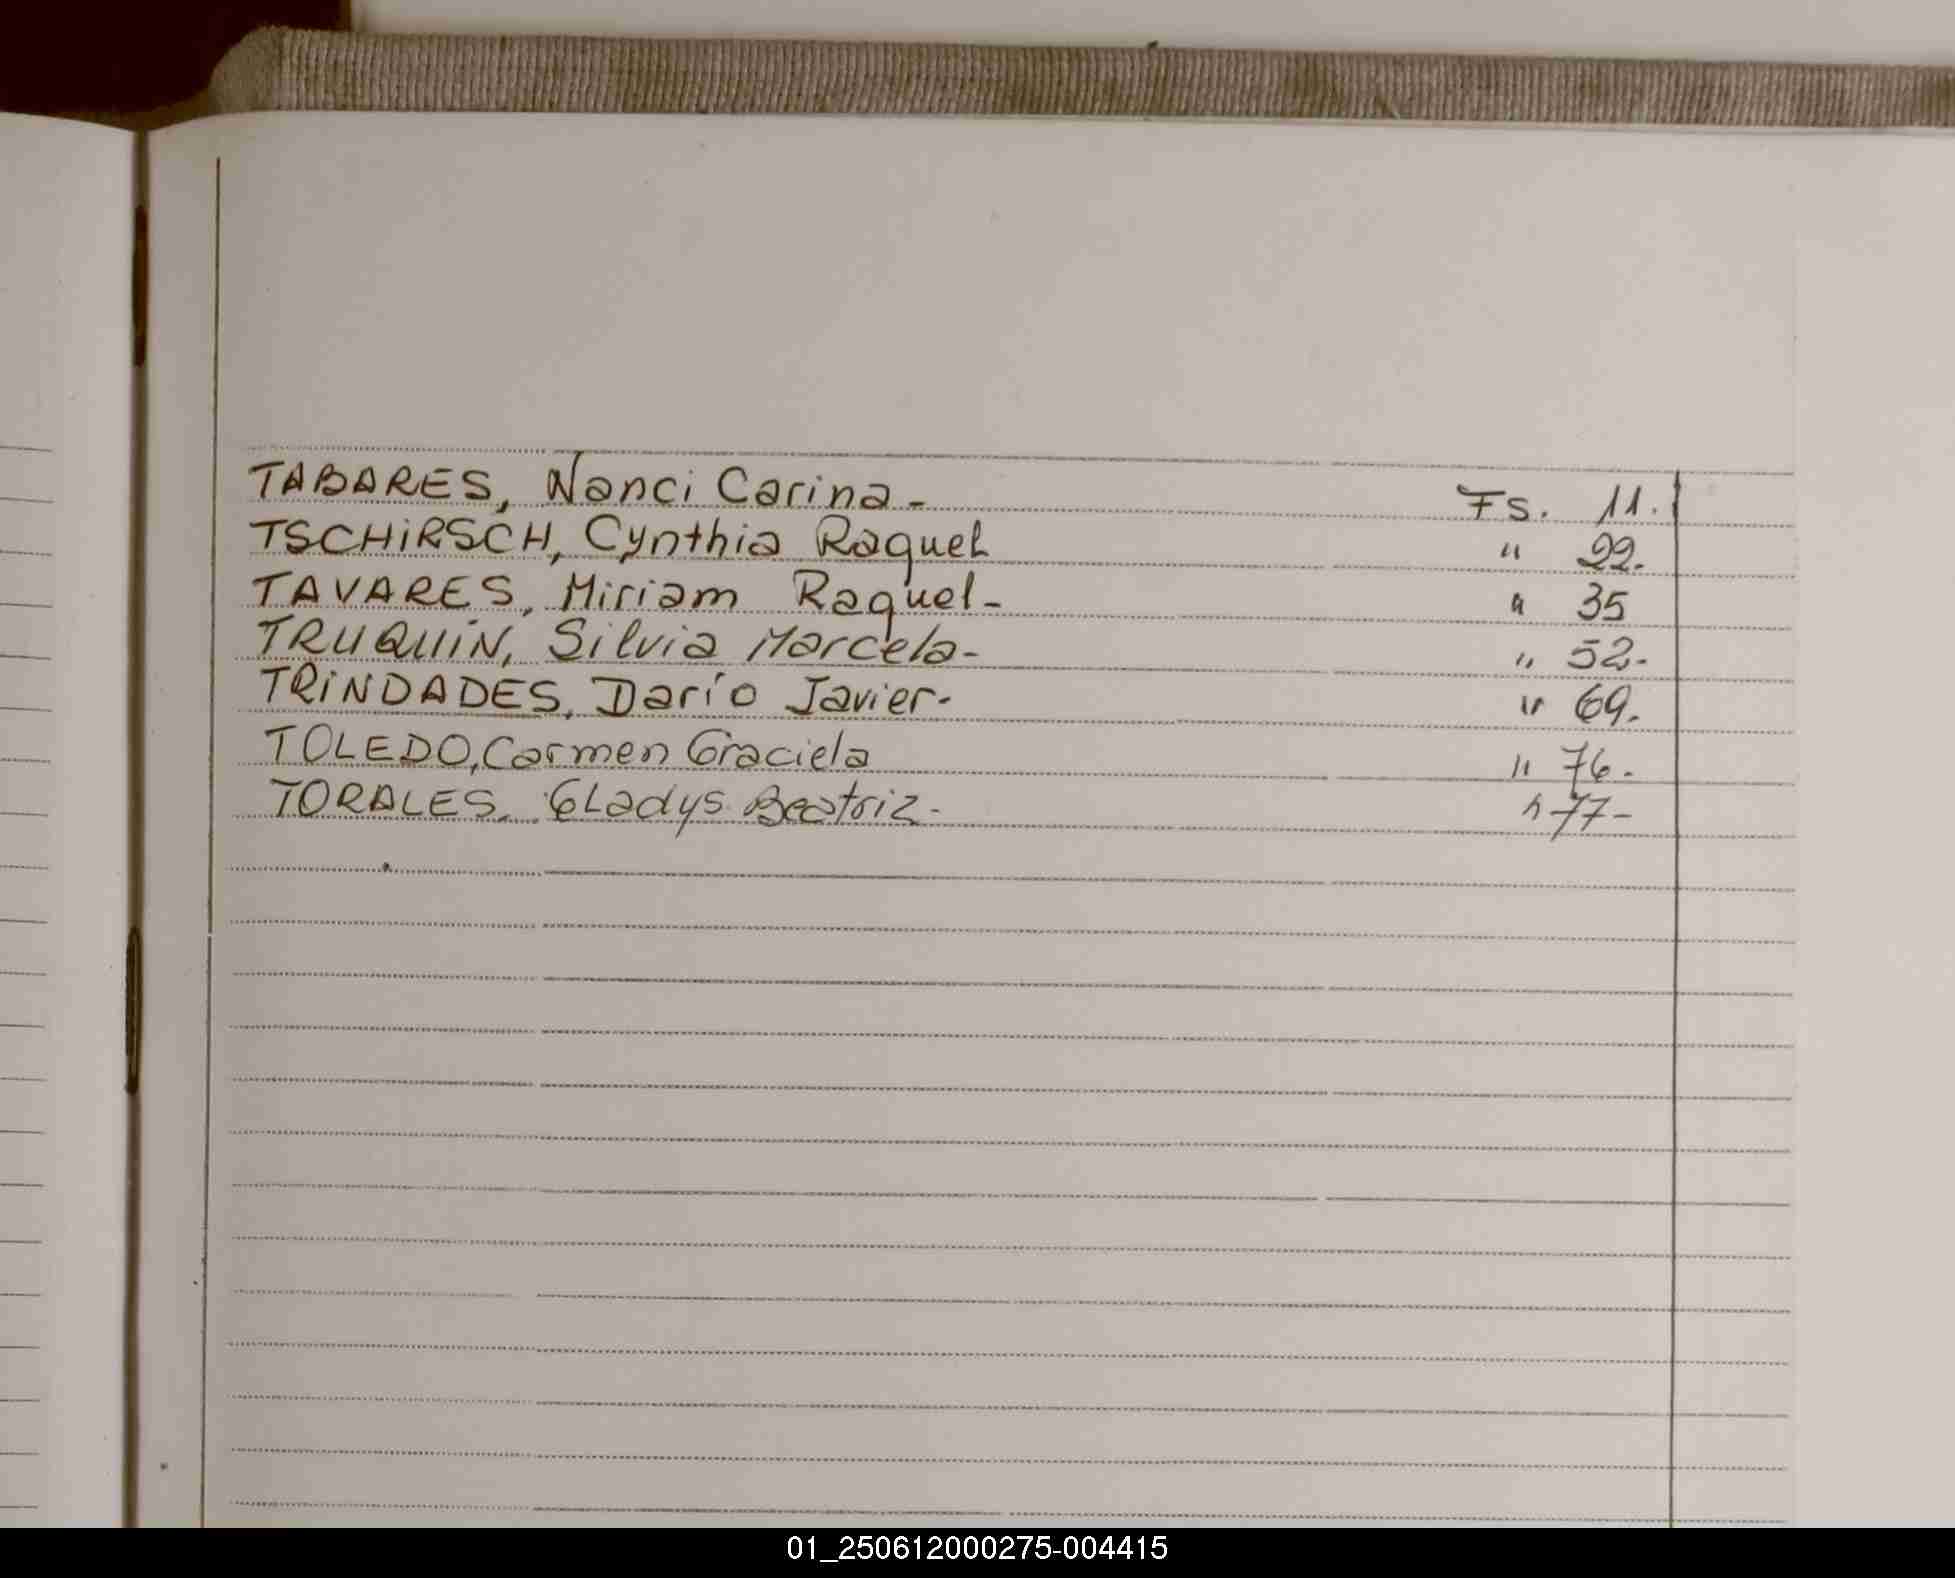 TABARES, Nanci Carina - Fs. 11.
TSCHiRSCH, Cynthia Raquel " 22.
TAVARES, Miriam Raquel - " 35
TRUQUiN, Silvia Marcela - " 52.
TRiNDADES, Darío Javier - " 69.
TOLEDO, Carmen Graciela " 76.
TORALES, Gladys Beatriz - " 77-
01_250612000275-004415